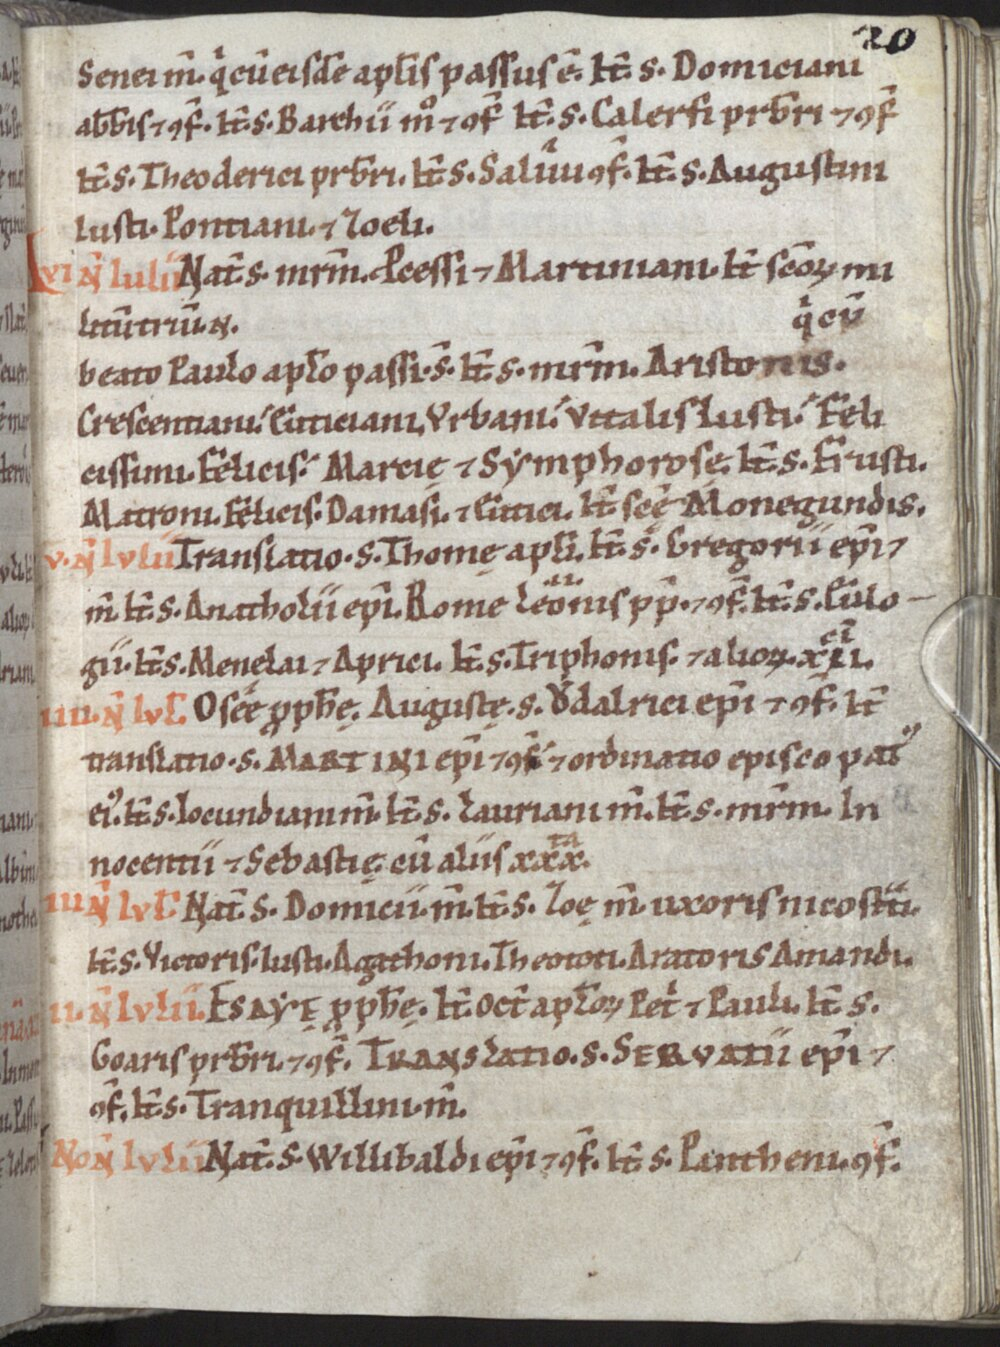 20
Senei m̄. q̇ cū eisdē aplīs passus ē. Itē. s. Domiciani
abb̄is ⁊ ꝯf̄. Itē. s. Barthii m̊ ⁊ ꝯf̄ Itē. s. Calerfi prb̄ri ⁊ ꝯf̄
Itē. s. Theoderici prb̄ri. Itē. s. Saluii ꝯf̄. Itē. s. Augustini
Iusti. Pontiani. ⁊ Zoeli.
VI N̄ Iulii Nat̄. s. mr̄m. Ꝓcessi ⁊ Martiniani. Itē scōꝝ mi
litū triū. N.
q̇ cū
beato Paulo aplo passi. s̄. Itē. s. mr̄m. Aristonis.
Crescentiani. Euticiani, Vrbani. Vitalis Iusti. Feli
cissimi. Felicis. Marcię ⁊ Symphorosę. Itē. s. Frusti.
Matroni. Felicis. Damasi. ⁊ Eutici. Itē scē Monegundis.
V. N̄ Ivlii Translatio. s. Thomę apli. Itē. s. Gregorii ep̄i ⁊
m̄. Itē. s. Anatholii ep̄i. Rome Leonis pp̄. ⁊ ꝯf̄. Itē. s. Eulo
gii. Itē. s. Menelai ⁊ Aprici. Itē. s. Triphonis. ⁊ alioꝝ. xii.
IIII. N̄ Ivl̄. Oseę ꝓph̄ę. Augustę. s. Vdalrici ep̄i ⁊ ꝯf̄. Itē
translatio. s. MARTINI ep̄i ⁊ ꝯf̄ ⁊ ordinatio episcopat
ei᾽. Itē. s. Iocundiani m̄. Itē. s. Lauriani m̄. Itē. s. mr̄m. In
nocentii ⁊ Sebastię. cū aliis xxx.
III N̄ Ivl̄. Nat̄. s. Domicii. m̄. Itē. s. Zoę m̄. uxoris nicostti.
Itē. s. Victoris. Iusti. Agathoni. Theototi. Aratoris Amandi.
II. N̄ Ivlii. Esayę ꝓph̄ę. Itē. Oct̄ aploꝝ Pet̍ ⁊ Pauli. Itē s.
Goaris prb̄ri. ⁊ ꝯf̄. Translatio. s. SERVATII ep̄i ⁊
ꝯf̄. Itē. s. Tranquillini. m̄.
Non̄ Ivlii Nat̄. s. Willibaldi ep̄i ⁊ ꝯf̄. Itē s. Pantheni. ꝯf̄.